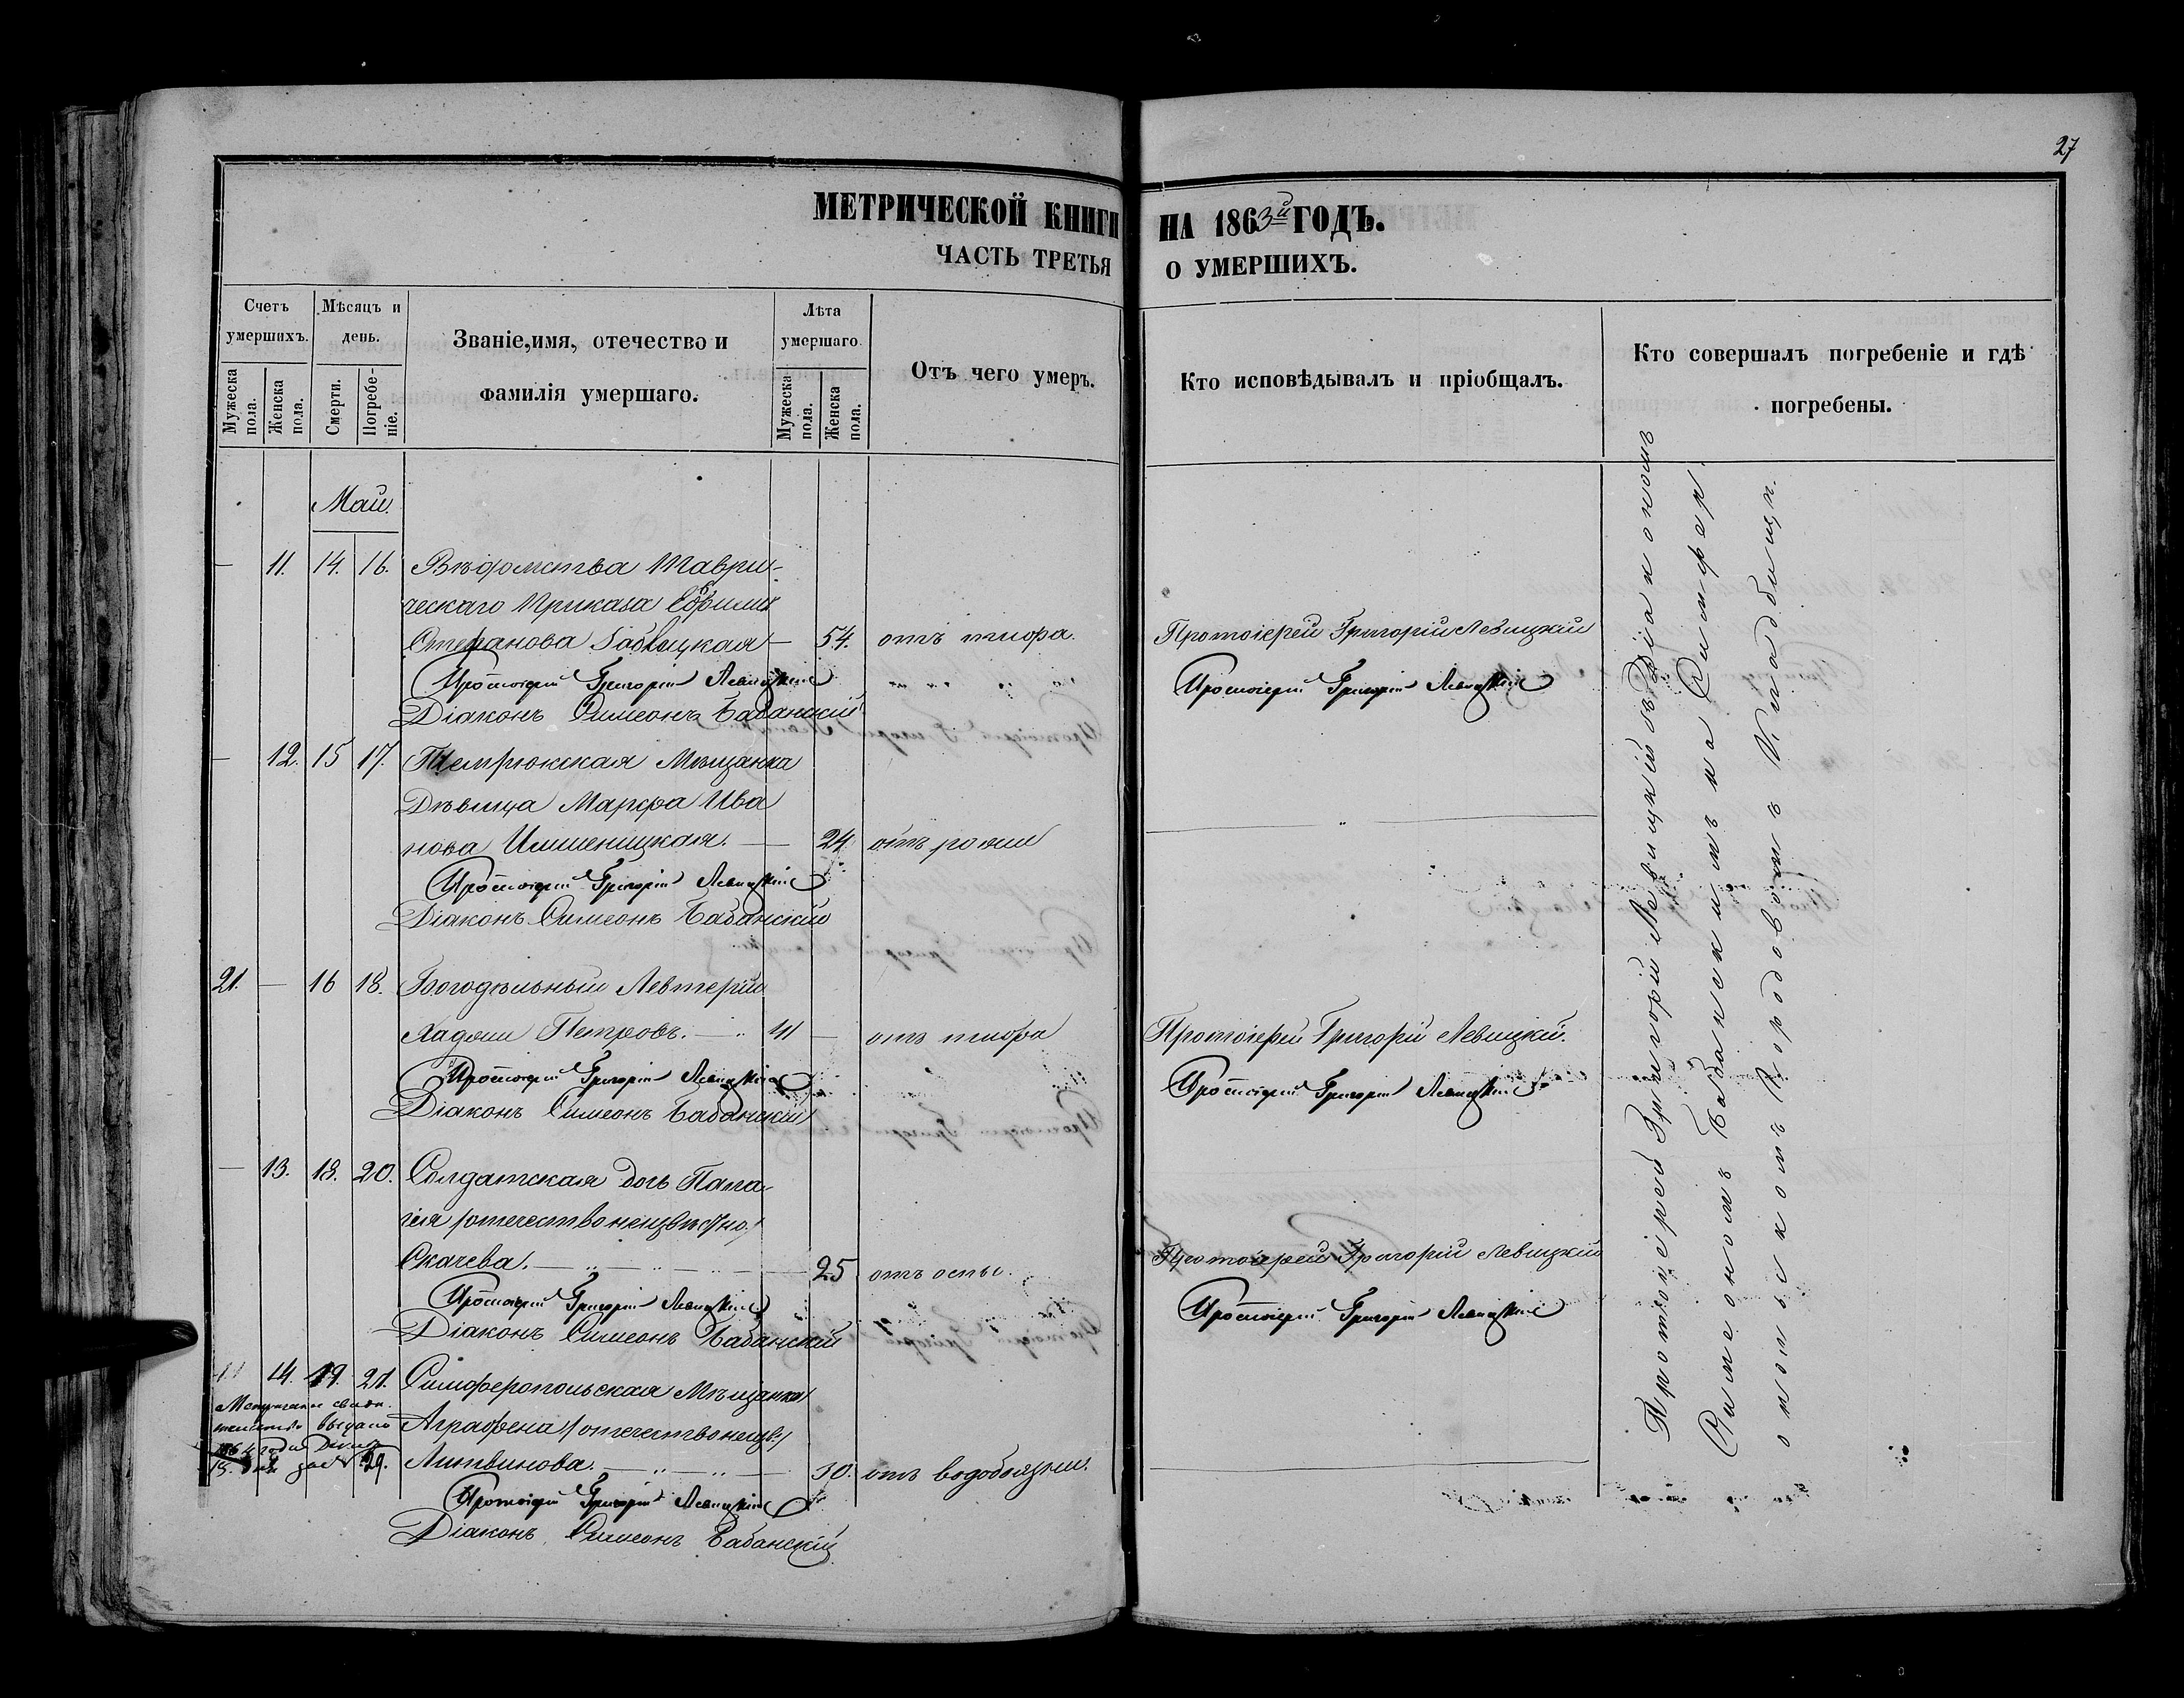 27
МЕТРИЧЕСКОЙ КНИГИ НА 1863й ГОДЪ.
ЧАСТЬ ТРЕТЬЯ О УМЕРШИХЪ.
Счетъ умершихъ.
Мужеска пола.
Женска пола.
Мѣсяцъ и день.
Смерти.
Погребе-ніе.
Званіе, имя, отечество и
фамилія умершаго.
Лѣта умершаго.
Мужеска пола.
Женска пола.
Отъ чего умеръ.
Кто исповѣдывалъ и пріобщалъ.
Кто совершалъ погребеніе и гдѣ
погребены.
Май.
— 11. 14. 16. Вѣдомства Таври-
ческаго Приказа
Стефанова — 54. отъ тифа. Протоіерей Григорій Левицкій
Протоіерей Григорій Левицкій Протоіерей Григорій Левицкій
Діаконъ Симеонъ Бабанскій
— 12. 15 17. Темрюкская Мѣщанка
Дѣвица Марфа Ива
нова — 24. отъ рожи
Протоіерей Григорій Левицкій
Діаконъ Симеонъ Бабанскій
21. — 16 18. Богодѣльный Левтерій
Петровъ. — отъ тифа Протоіерей Григорій Левицкій.
Протоіерей Григорій Левицкій Протоіерей Григорій Левицкій
Діаконъ Симеонъ Бабанскій
— 13. 18. 20. Солдатская дочь Пала-
гія /отечество неизвѣстно./
Скачева. — 25 отъ оспы. Протоіерей Григорій Левицкій
Протоіерей Григорій Левицкій Протоіерей Григорій Левицкій
Діаконъ Симеонъ Бабанскій
14. 19. 21. Симферопольская Мѣщанка
Аграфена /отечество неизв./
Литвинова. — 30. отъ водобоязни.
Протоіерей Григорій Левицкій
Діаконъ Симеонъ Бабанскій
выдано
1864 года
Протоіерей Григорій Левицкій съ Діакономъ
Симеономъ Бабанскимъ на Симфер
опольскомъ Городовомъ Кладбищѣ.